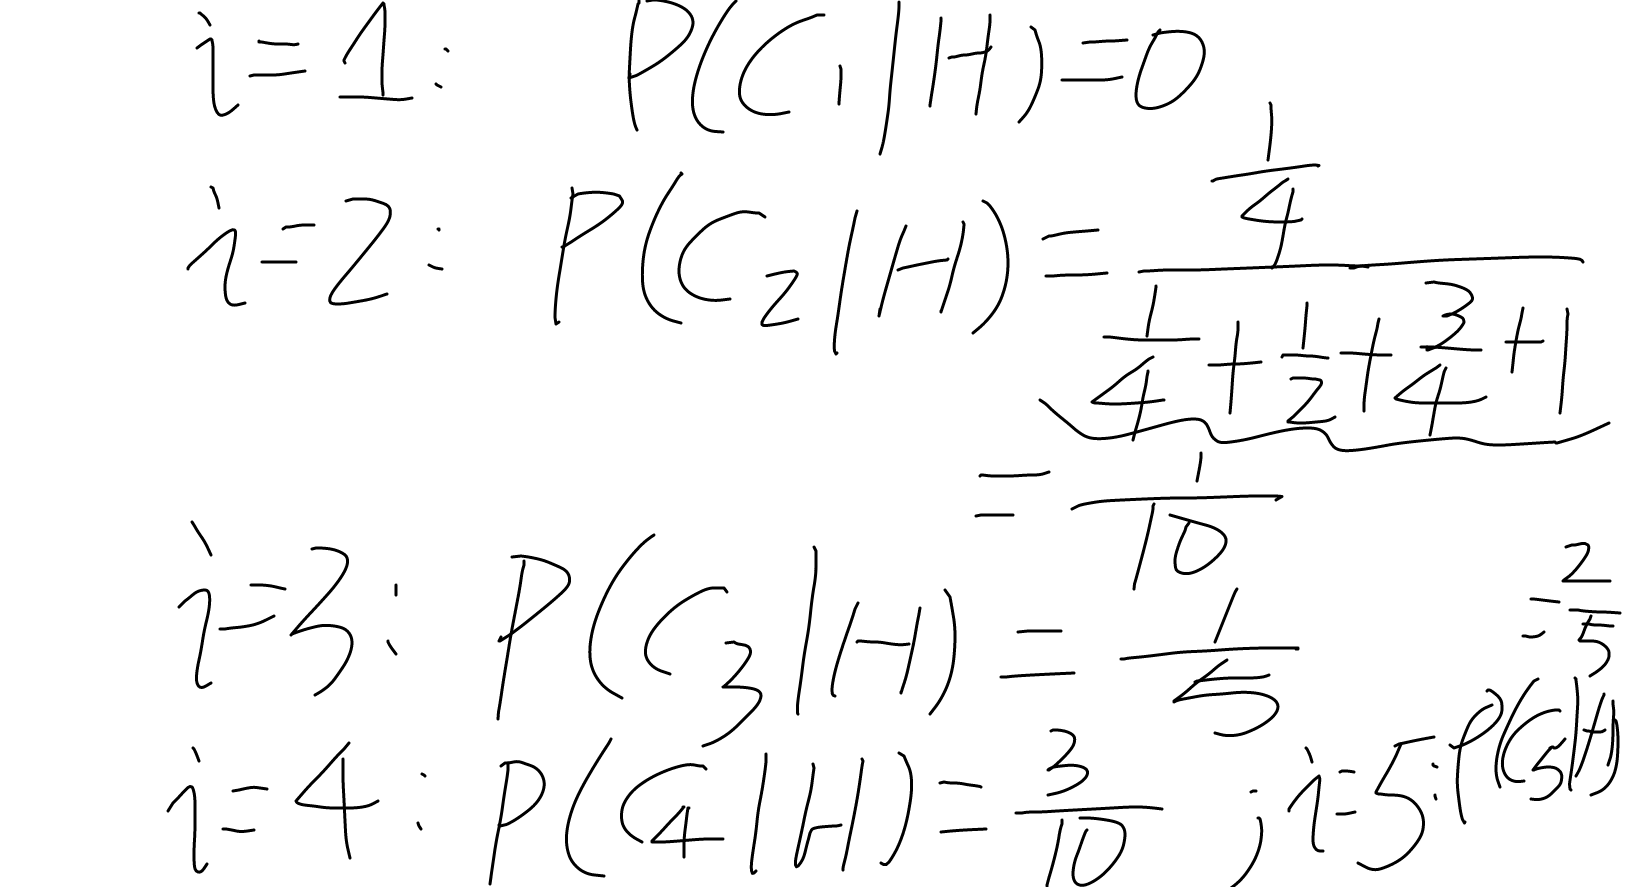 i=1: P(C₁|H)=0
i=2: P(C₂|H)= (1/4)/(1/4+1/2+3/4+1)
=1/10
i=3: P(C₃|H)=1/5
i=4: P(C₄|H)=3/10 ; i=5: P(C₅|H)
=2/5